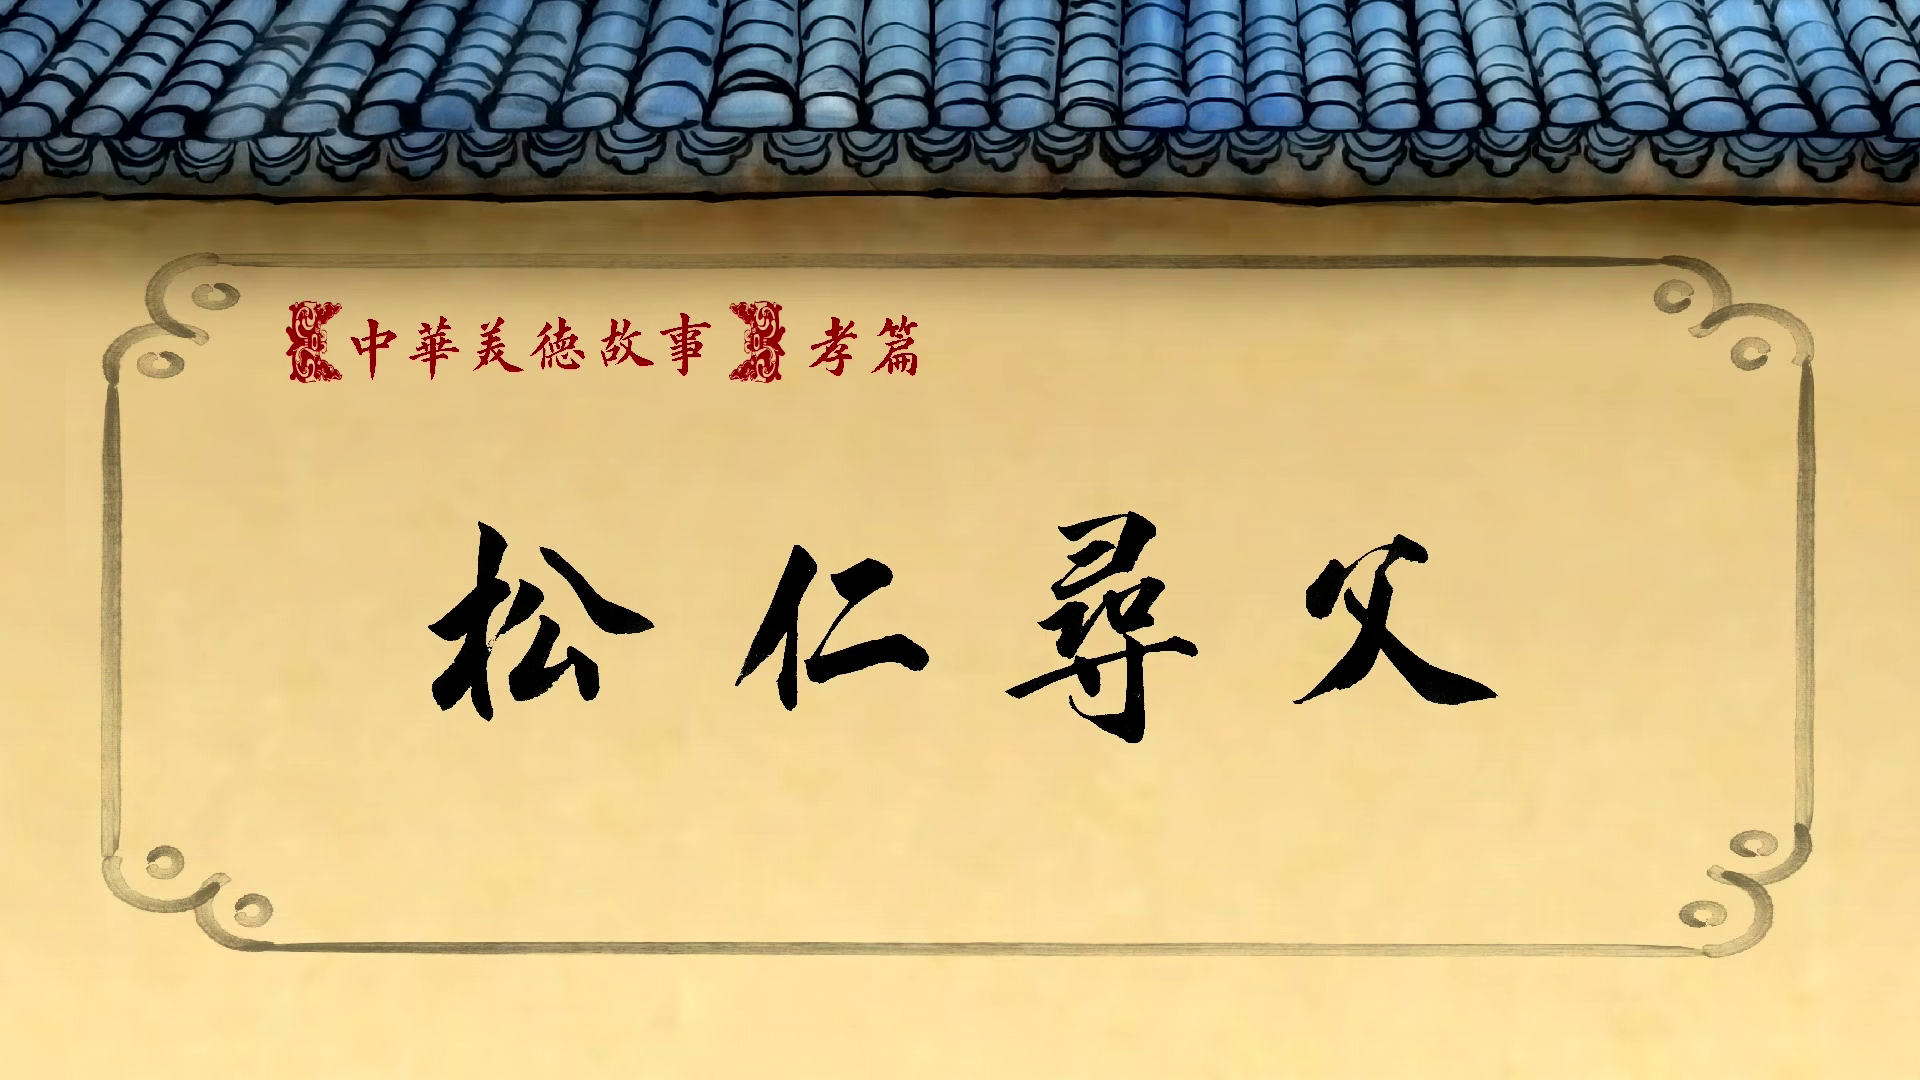 中華美德故事 孝篇
松仁尋父